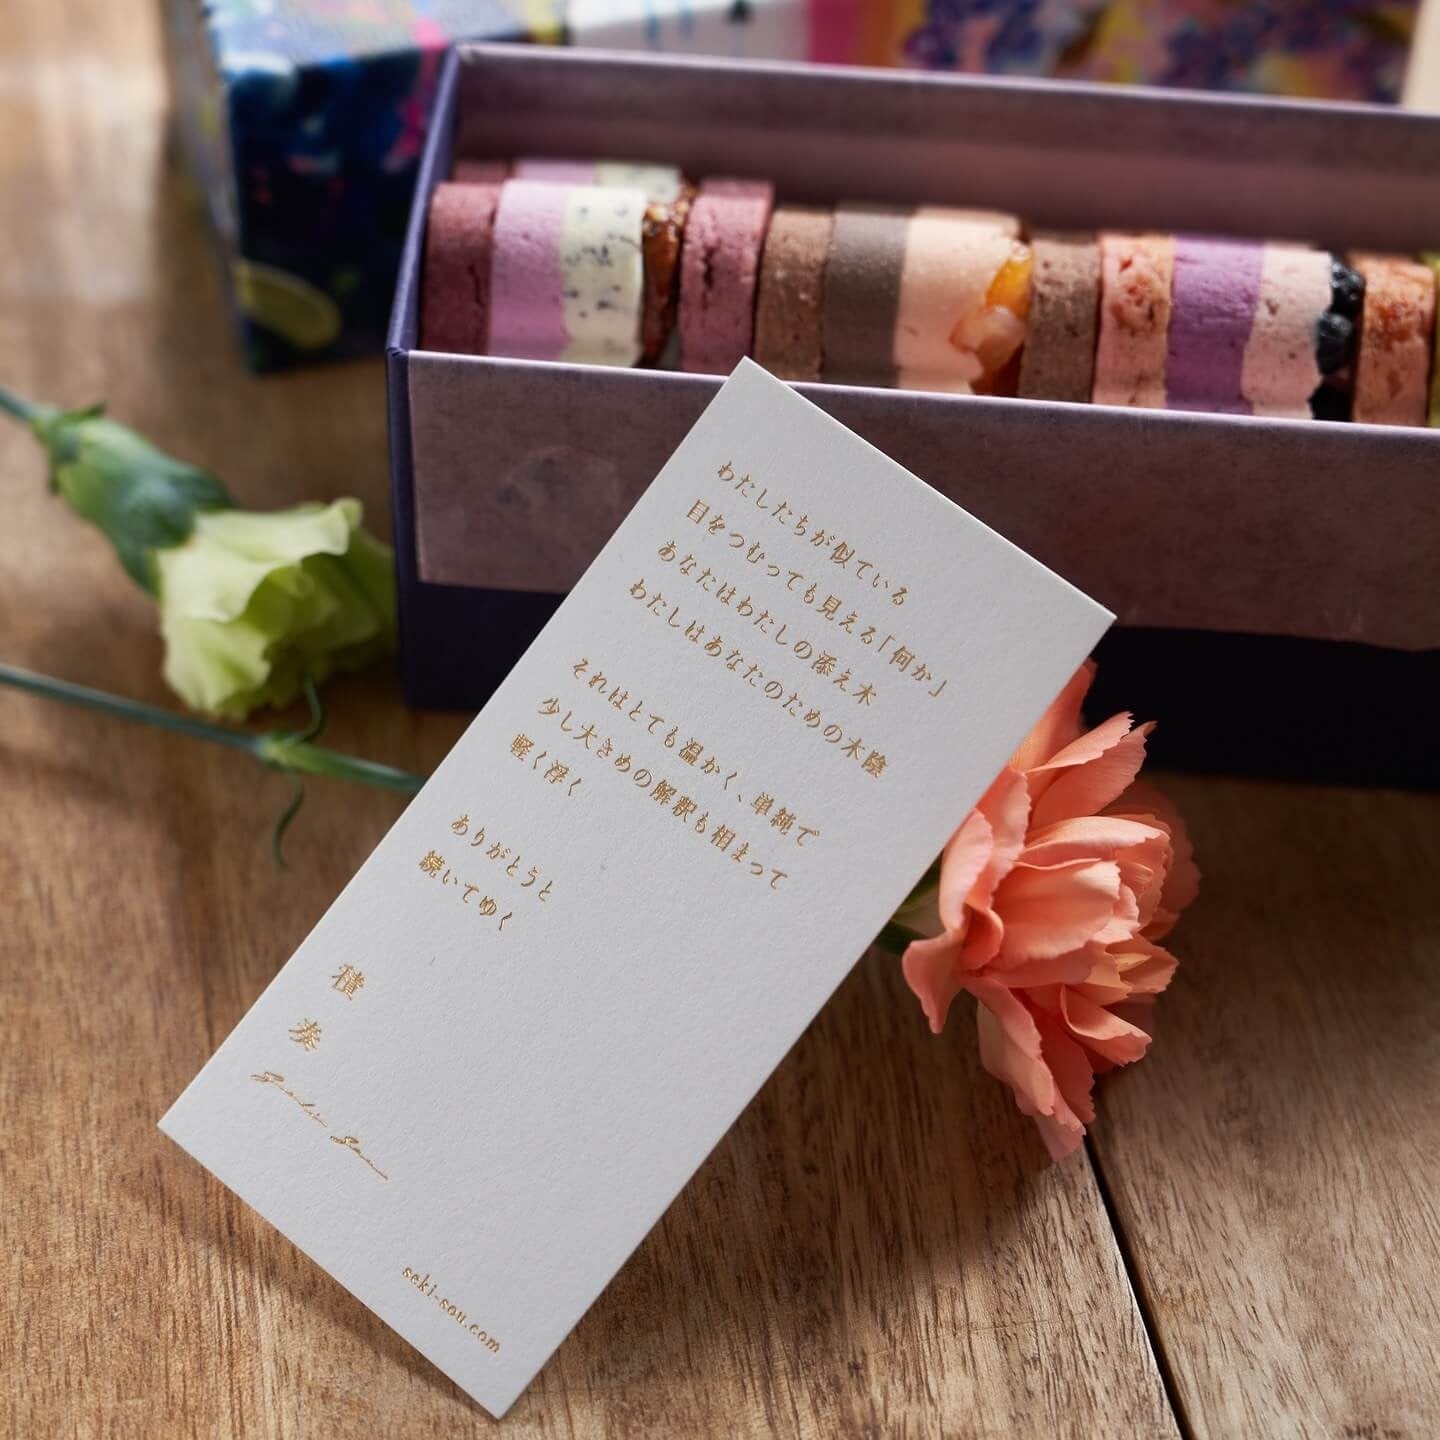 わたしたちが似ている
目をつむっても見える「何か」
あなたはわたしの添え木
わたしはあなたのための木陰
それはとても温かく、単純で
少し大きめの解釈も相まって
軽く浮く
ありがとうと
続いてゆく
積
奏
Seki Sou
seki-sou.com